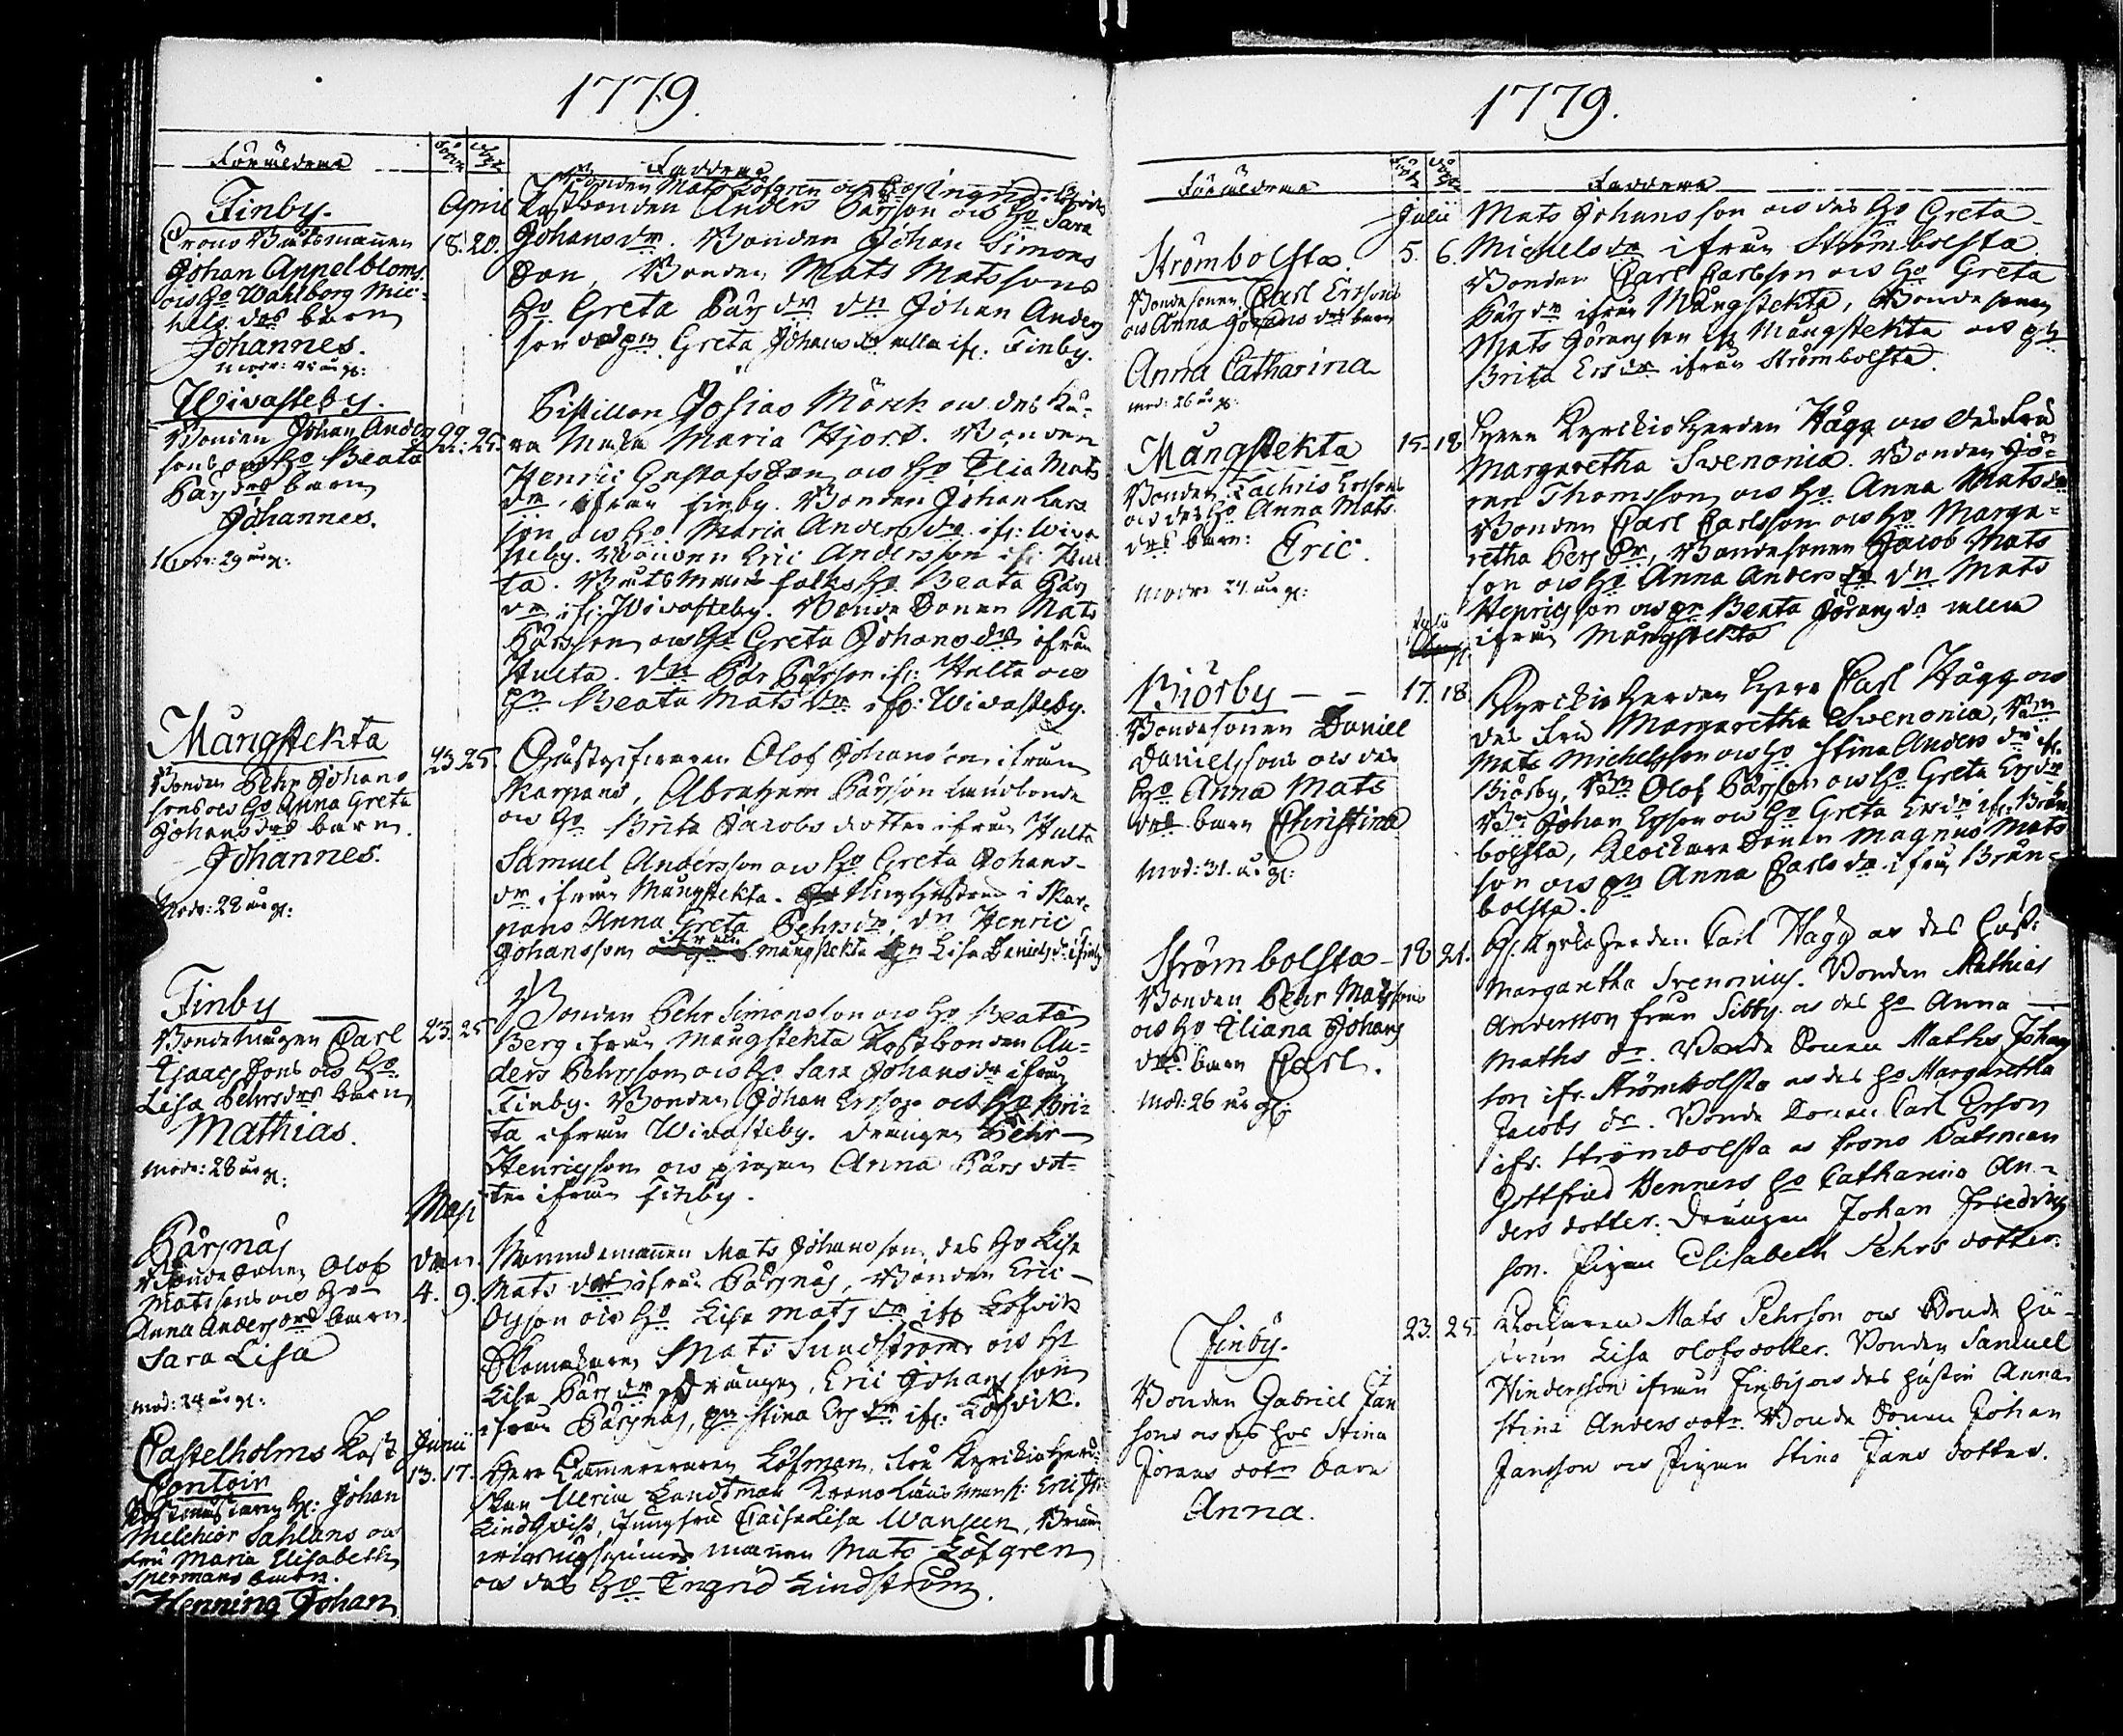 1779.
Föräldrar
Född
Christ.
Faddrar
Finby.
Crono Båtsmannen
Johan Appelbloms
och ho Wahlborg Mic-
hels drs barn
Johannes.
modr: åhr gl:
April
18. 20.
Bonden Mats Löfgren och ho Ingrid
Rostbonden Anders Pärsson och ho Sara
Johans dr. Bonden Johan Simons
son, Bonden Mats Matssons
ho Greta Pärs dr dn Johan Anders
son och pn Greta Johans dr alla ifr: Finby.
Wivasteby.
Bonden Johan Anders
sons och ho Beata
Pärs drs barn
Johannes.
Modr: 29 åhr gl:
22. 25.
Pistillan Josias Mörck och des Kä-
ra Maka Maria Hjort. Bonden
Henric Gustafsson och ho Elin Mats
dr ifrån Finby. Bonden Johan Lars
son och ho Maria Anders dr ifr: Wiva
steby. Bonden Eric Andersson ifr: Hul
ta. Båtsman ho Beata Pärs
dr ifr: Wivasteby. Bonde Sonen Mats
Pärsson och ho Greta Johans dr ifrån
Hulta. dn Pär Pärsson ifr: Hulta och
pn Beata Mats dr ifr: Wivasteby.
Mångstekta
Bonden Pehr Johans
sons och ho Anna Greta
Johans drs barn.
Johannes.
Modr: 28 åhr gl:
23 25.
Olof Johansson ifrån
Skarpans, Abraham Pärsson Landbonde
och ho Brita Jacobs dotter ifrån Hulta
Samuel Andersson och ho Greta Johans-
dr ifrån Mångstekta. i Skar-
pans Anna Greta Pehrs dr, dn Henric
Johansson ifrån Mångstekta pn Lisa Daniels dr ifr: Finby
Finby
Bondedrängen Carl
Isaacs Sons och ho
Lisa Pehrs drs barn
Mathias.
Modr: 28 åhr gl:
23. 25
Bonden Pehr Simonsson och ho Beata
Berg ifrån Mångstekta Rostbonden An-
ders Pehrsson och ho Sara Johans dr ifrån
Finby. Bonden Johan Ersson och ho Bri-
ta ifrån Wivasteby. drängen Pehr
Henricsson och pigan Anna Pärs dot-
ter ifrån Finby.
Maji
Pärsnäs
Bonde Sonen Olof
Matssons och ho
Anna Anders drs barn
Sara Lisa
mod: 24 åhr gl:
den.
4. 9.
Nämndemannen Mats Johansson des ho Lisa
Mats dr ifrån Pärsnäs, Bonden Eric
Olsson och ho Lisa Mats dr ifr: Löfvik
Skomakaren Mats Sundström och ho
Lisa Pärs dr drängen, Eric Johansson
ifrån Pärsnäs, pn Stina Ers dr ifr: Löfvik.
Castelholms Post
Contoir
Hr: Johan
Melchior Sahlans och
fru Maria Elisabeth
Spermans barn.
Henning Johan
Junii
13. 17.
Herr Löfman, fru Kyrckioherd-
skan Maria Landtman Krono Länsman Eric
Lindqvist, Jungfru Caisa Lisa Wansen,
mannen Mats Löfgren
och des ho Ingrid Lindström.
1779.
Föräldrar
Född
Christ.
Faddrar
Strömbolsta.
Bondesonen Carl Erssons
och Anna Görans drs barn
Anna Catharina
mod: 26 åhr gl:
Julii
5. 6.
Mats Johansson och des ho Greta
Michels dr ifrån Strömbolsta
Bonden Carl Carlsson och ho Greta
Pärs dr ifrån Mångstekta, Bondesonen
Mats Göransson ifr Mångstekta och pn
Brita Ers dr ifrån Strömbolsta.
Mångstekta
Bonden Zachris Erssons
och des ho Anna Mats
drs barn:
Eric.
modr 24 åhr gl:
15. 18
Herr Kyrckioherden Hägg och des Fru
Margaretha Svenonia. Bonden Gö-
ran Thomsson och ho Anna Mats dr
Bonden Carl Carlsson och ho Marga-
retha Pers dr, Bondesonen Jacob Mats
son och ho Anna Anders dr dn Mats
Henricsson och pn Beata Görans dr alla
ifrån Mångstekta
Julii
Biörby
Bondesonen Daniel
Danielssons och des
ho Anna Mats
drs barn Christina
mod: 31. åhr gl:
17. 18.
Kyrckio Herden Herr Carl Hägg och
des Fru Margaretha Svenonia, Bn
Mats Michelsson och ho Stina Anders dr ifr.
Biörby, Bn Olof Pärsson och ho Greta Ers dr
Bn Johan Ersson och ho Greta Ers dr ifr. Brän
bolsta, Klockare Sonen Magnus Mats
son och pn Anna Carls dr ifrån Brän-
bolsta.
Strömbolsta
Bonden Pehr Matssons
och ho Eliana Johans
drs barn Carl.
Mod: 26 åhr gl:
18 21.
Hr. Kyrkoherden Carl Hägg och des Hust:
Margaretha Svenonius. Bonden Mathias
Andersson från Sibby och des ho Anna
Maths dr. Bonde Sonen Maths Johans
son ifr. Strömbolsta och des ho Margaretha
Jacobs dr. Bonde Sonen Carl Erson
ifr. Strömbolsta och Crono Båtsman
Gottfried Henners ho Catharina An-
ders dotter. Drängen Johan Friedrics
son. Pigan Elisabeth Pehrs dotter.
Finby.
Bonden Gabriel Jan
sons och des hos Stina
Jörans dotr barn
Anna.
23. 25.
Klockaren Mats Pehrson och Bonde hu-
strun Lisa Olofsdotter. Bonden Samuel
Hindersson ifrån Finby och des hustru Anna
Stina Anders dotr. Bonde Sonen Johan
Jansson och Pigan Stina Jans dotter.